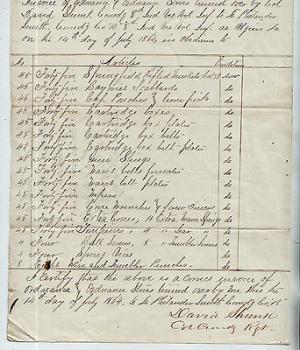 Invoice of Ordnance & Ordnance Stores turned over by Col
David Shunk Comdg 8th Ind Vet Vol Inf to Lt Philander
Smith Comdg Co "K" 8th Ind Vet Vol Inf at Algiers La
on the 14th day of July 1864 in obedience to
No Articles Condition
45 Forty five Springfield Rifled muskets Cal 58 do
45 Forty five Bayonet Scabbards do
45 Forty five Cap Pouches & cone picks do
45 Forty five Cartridge boxes do
45 Forty five Cartridge box plates do
45 Forty five Cartridge box belts do
45 Forty five Cartridge box belt plates do
45 Forty five Gun Slings do
45 Forty five Waist belts private do
45 Forty five Waist belt plates do
45 Forty five Wipers do
45 Forty five Cone Wrenches & Screw drivers do
45 Forty five Extra Cones, do
45 Forty five Tompions do
4 Four Ball Screws, do
4 Four Spring Vices do
8 Wire and Tumbler Punches do
I Certify that the above is a correct invoice of
Ordnance & Ordnance Stores turned over by me this the
14th day of July 1864, to Lt Philander Smith Comdg Co "K"
David Shunk
Col Comdg Rgt.